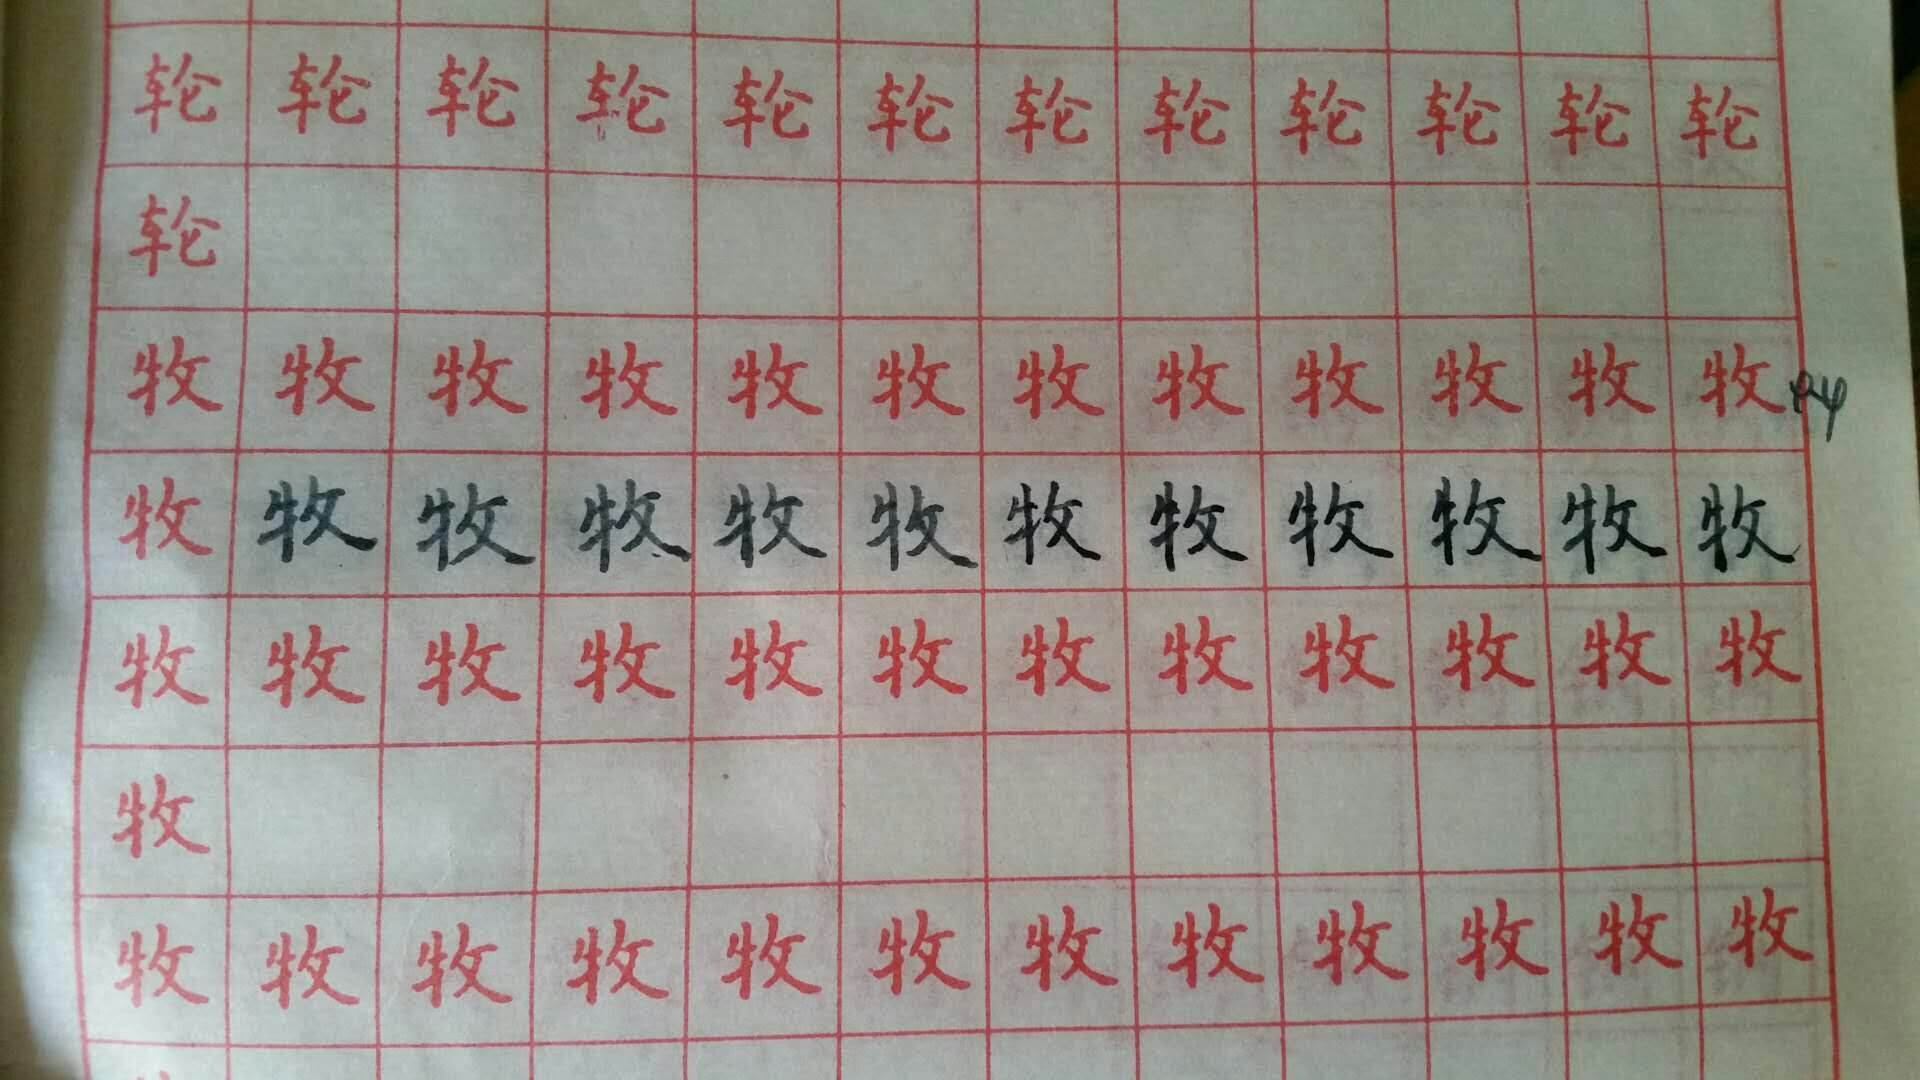 轮轮轮轮轮轮轮轮轮轮轮轮
轮
牧牧牧牧牧牧牧牧牧牧牧牧
牧牧牧牧牧牧牧牧牧牧牧牧
牧牧牧牧牧牧牧牧牧牧牧牧
牧
牧牧牧牧牧牧牧牧牧牧牧牧